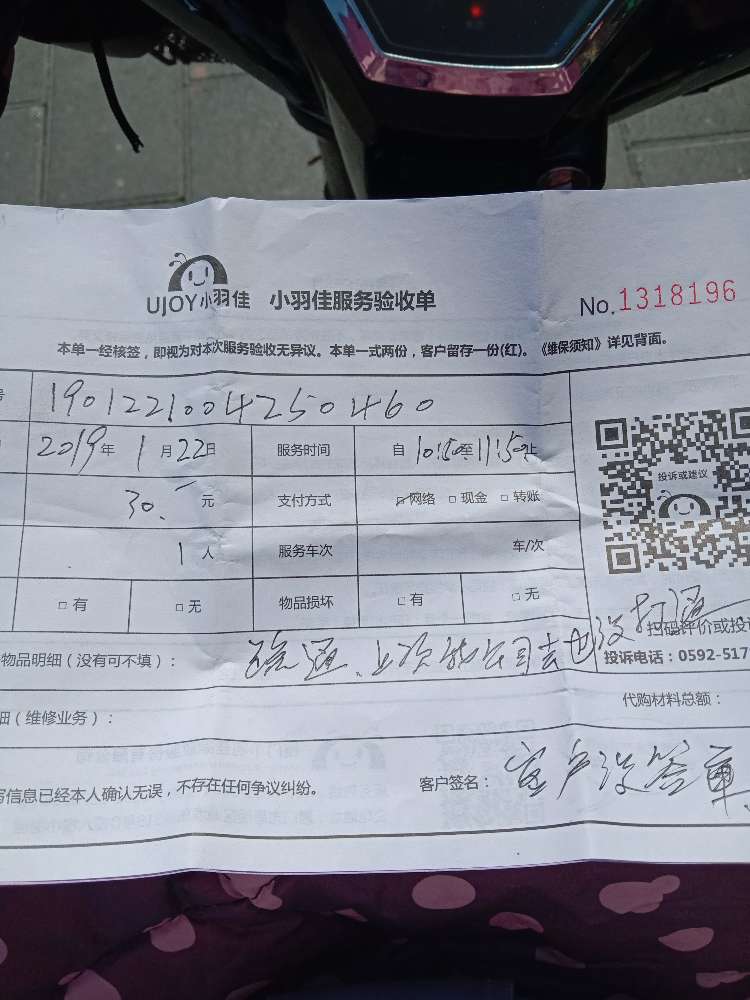 UJOY小羽佳 小羽佳服务验收单
No.1318196
本单一经核签，即视为对本次服务验收无异议。本单一式两份，客户留存一份(红)。《维保须知》详见背面。
号 1901221004250460
2019年1月22日 服务时间 自10:50至11:50止
30.一元 支付方式 网络 现金 转账
投诉或建议
1人 服务车次 车/次
有 无 物品损坏 有 无
扫码评价或投诉
投诉电话：0592-517
物品明细（没有可不填）： 疏通、上次物公司去也没打通
代购材料总额：
细（维修业务）：
写信息已经本人确认无误，不存在任何争议纠纷。 客户签名： 客户没签单